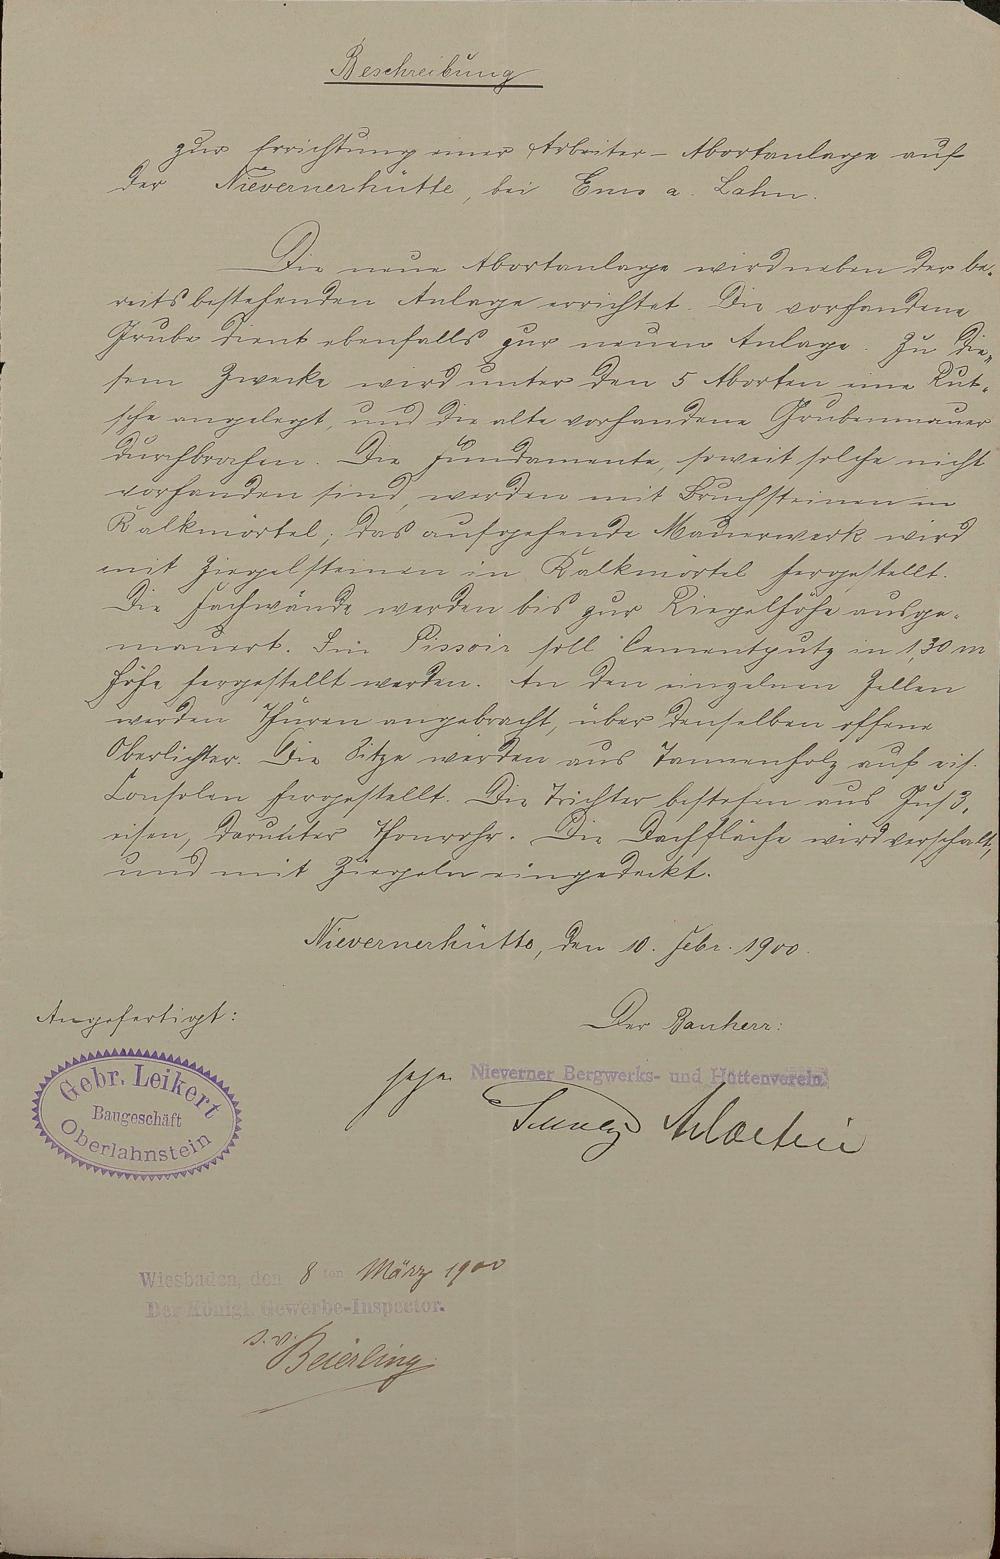 Beschreibung
zur Errichtung einer Arbeiter-Abortanlage auf
der Nievernerhütte, bei Ems a. Lahn.
Die neue Abortanlage wird neben der be-
reits bestehenden Anlage errichtet. Die vorhandene
Grube dient ebenfalls zur neuen Anlage. Zu die-
sem Zwecke wird unter den 5 Aborten eine Rut-
sche angelegt, und die alte vorhandene Grubenmauer
durchbrochen. Die Fundamente, soweit solche nicht
vorhanden sind, werden mit Bruchsteinen in
Kalkmörtel; das aufgehende Mauerwerk wird
mit Ziegelsteinen in Kalkmörtel hergestellt.
Die Fachwände werden bis zur Riegelhöhe ausge-
mauert. Im Pissoir soll Cementputz in 1,30 m
Höhe hergestellt werden. An den einzelnen Zellen
werden Thüren angebracht, über denselben offene
Oberlichter. Die Sitze werden aus Tannenholz auf eis.
Consolen hergestellt. Die Trichter bestehen aus Guß-
eisen, darunter Thonrohr. Die Dachfläche wird verschalt,
und mit Ziegeln eingedeckt.
Nievernerhütte, den 10. Febr. 1900.
Angefertigt:
Der Bauherr:
Gebr. Leikert
Baugeschäft
Oberlahnstein
gez. Nieverner Bergwerks- und Hüttenverein
Wiesbaden, den 8ten März 1900
Der Königl. Gewerbe-Inspector.
Beierling